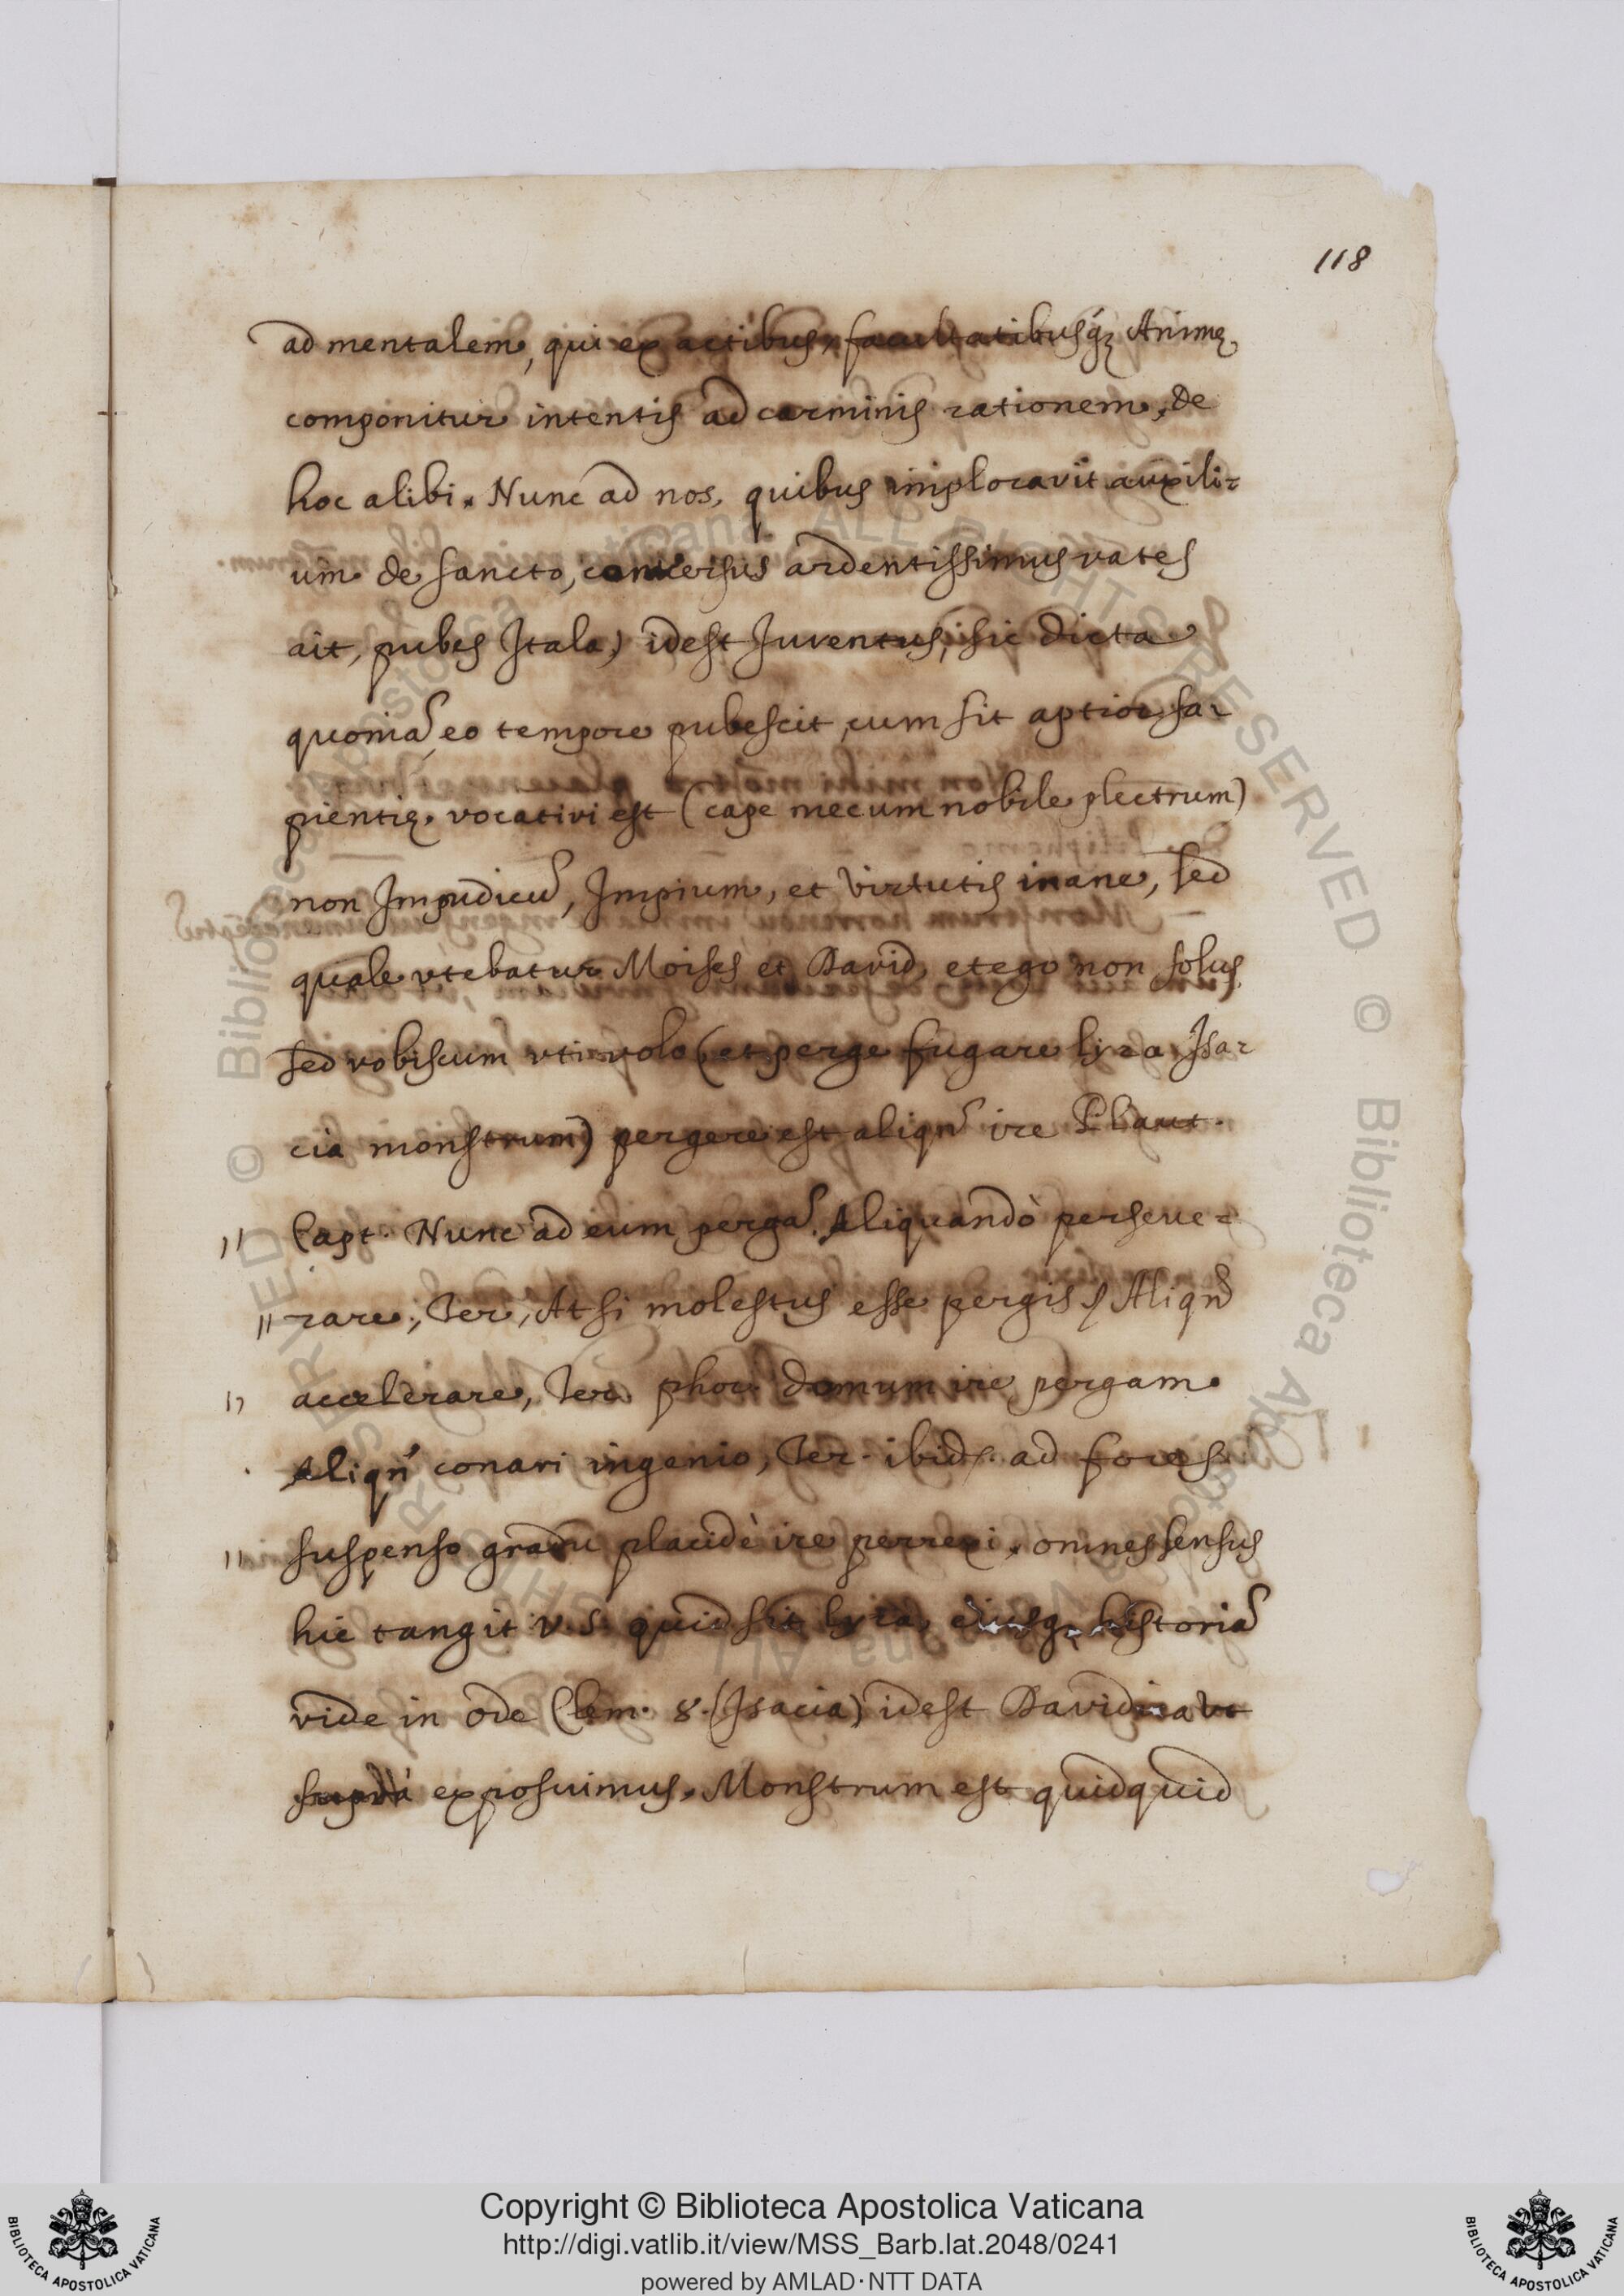 118
ad mentalem, qui ex actibus, facultatibusq; Animę
componitur intentis ad carminis rationem, de
hoc alibi. Nunc ad nos, quibus imploravit auxili=
um de sancto, conversus ardentissimus vates
ait, pubes Itala) idest Juventus, sic dicta
quoniã eo tempore pubescit, cum sit aptior sa=
pientię. vocativi est (cape mecum nobile plectrum)
non Impudicũ, Impium, et virtutis inane, sed
quale vtebatur Moises et David, et ego non solus
sed vobiscum vti volo (et perge fugare lyra Isa=
cia monstrum) pergere est aliqñ ire Plaut.
Capt. Nunc ad eum pergã. Aliquandò perseue=
rare, Ter, At si molestus esse pergis, Aliqñ
accelerare, Ter. phor. domum ire pergam.
Aliqñ conari ingenio, Ter. ibid. ad fores
suspenso gradu placidè ire perrexi, omnes sensus
hic tangit v. s. quid sit lyra, eiusq; historiã
vide in ode Clem. 8. (Isacia) idest Davidica vt
suprà exposuimus. Monstrum est quidquid
Copyright © Biblioteca Apostolica Vaticana
http://digi.vatlib.it/view/MSS_Barb.lat.2048/0241
powered by AMLAD·NTT DATA
BIBLIOTECA APOSTOLICA VATICANA
BIBLIOTECA APOSTOLICA VATICANA